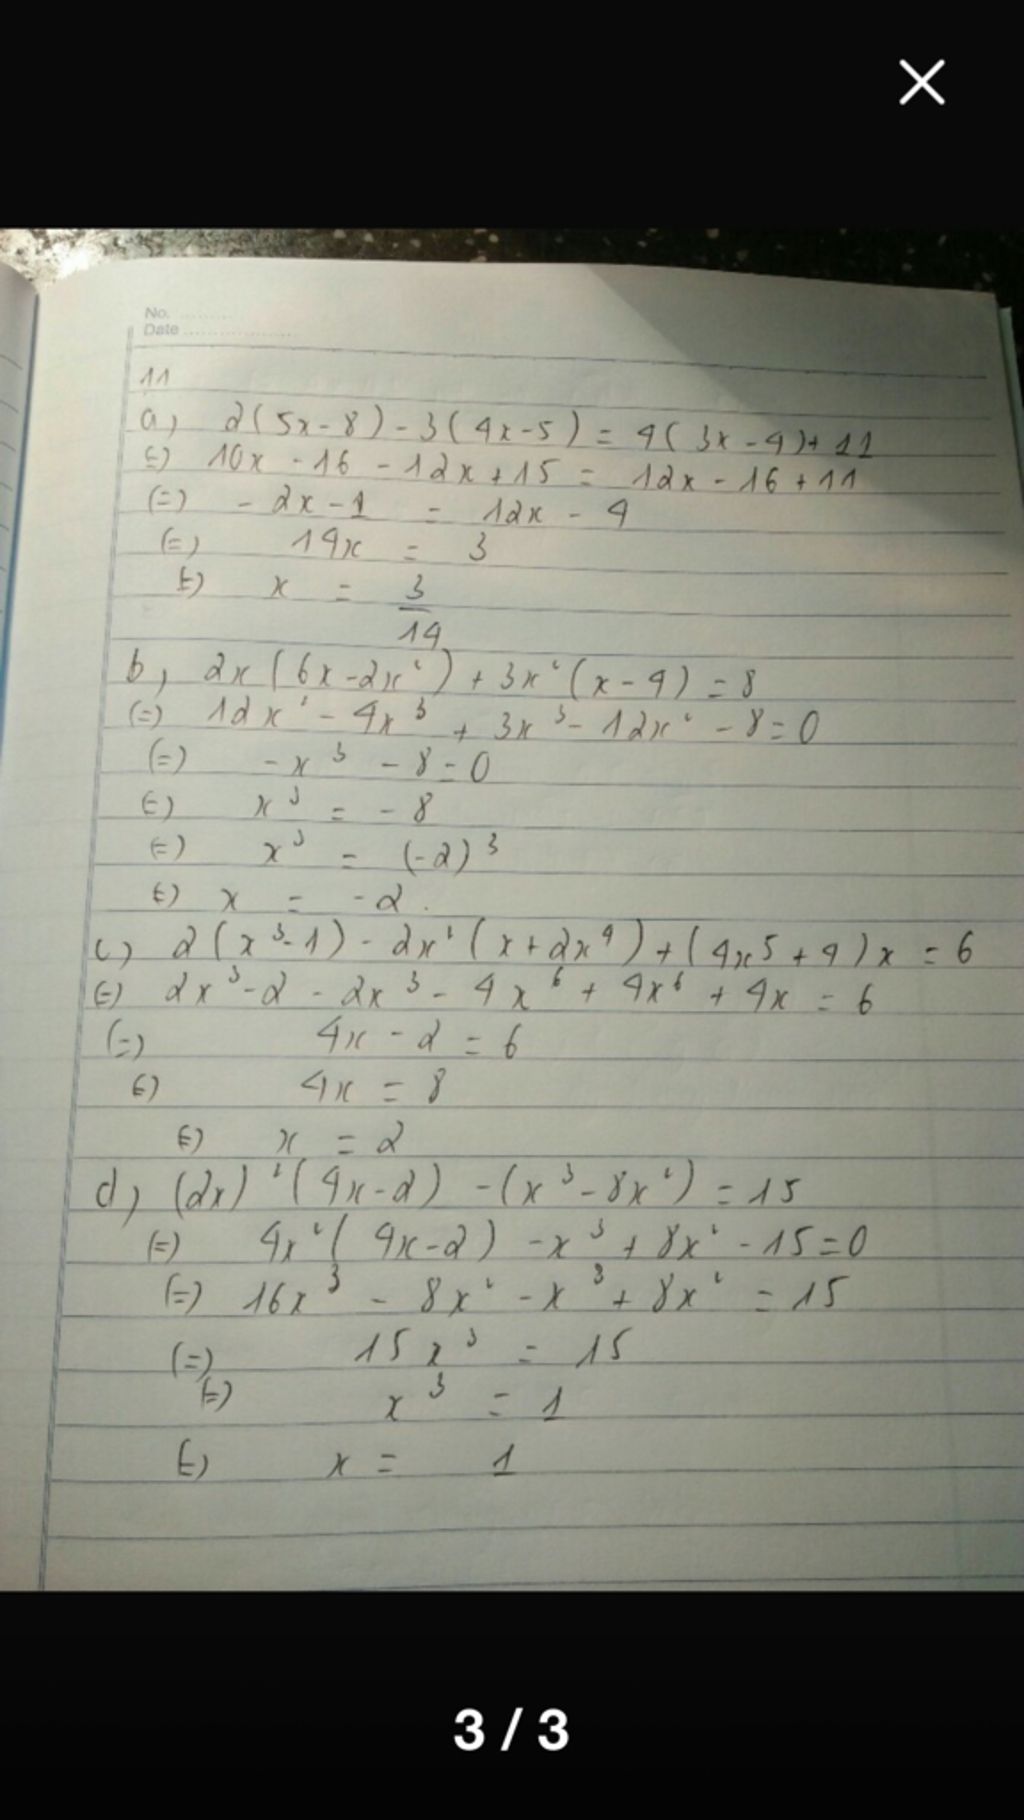 No. .........
Date ..................
11
a, 2(5x-8)-3(4x-5)=4(3x-4)+11
(=) 10x-16-12x+15=12x-16+11
(=) -2x-1 = 12x-4
(=) 14x = 3
(=) x = 3/14
b, 2x(6x-2x²)+3x²(x-4)=8
(=) 12x²-4x³+3x³-12x²-8=0
(=) -x³-8=0
(=) x³ = -8
(=) x³ = (-2)³
(=) x = -2.
c) 2(x³-1)-2x²(x+2x⁴)+(4x⁵+4)x=6
(=) 2x³-2-2x³-4x⁶+4x⁶+4x=6
(=) 4x-2=6
(=) 4x=8
(=) x=2
d, (2x)²(4x-2)-(x³-8x²)=15
(=) 4x²(4x-2)-x³+8x²-15=0
(=) 16x³-8x²-x³+8x²=15
(=) 15x³=15
(=) x³=1
(=) x=1
3 / 3